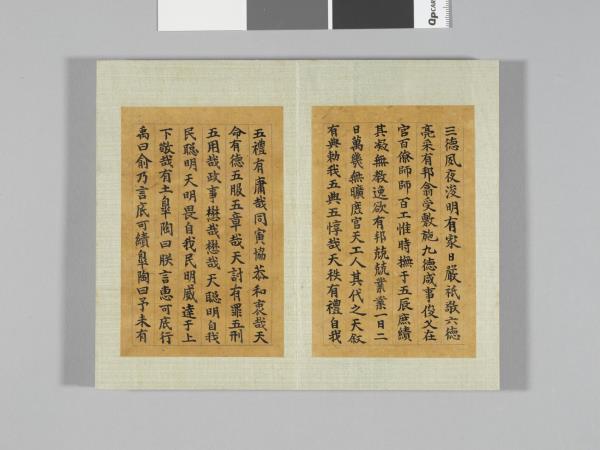 三德夙夜浚明有家日嚴祇敬六德
亮采有邦翕受敷施九德咸事俊乂在
官百僚師師百工惟時撫于五辰庶績
其凝無教逸欲有邦兢兢業業一日二
日萬幾無曠庶官天工人其代之天敘
有典勑我五典五惇哉天秩有禮自我
五禮有庸哉同寅協恭和衷哉天
命有德五服五章哉天討有罪五刑
五用哉政事懋哉懋哉天聰明自我
民聰明天明畏自我民明威達于上
下敬哉有土皐陶曰朕言惠可厎行
禹曰俞乃言厎可績皐陶曰予未有